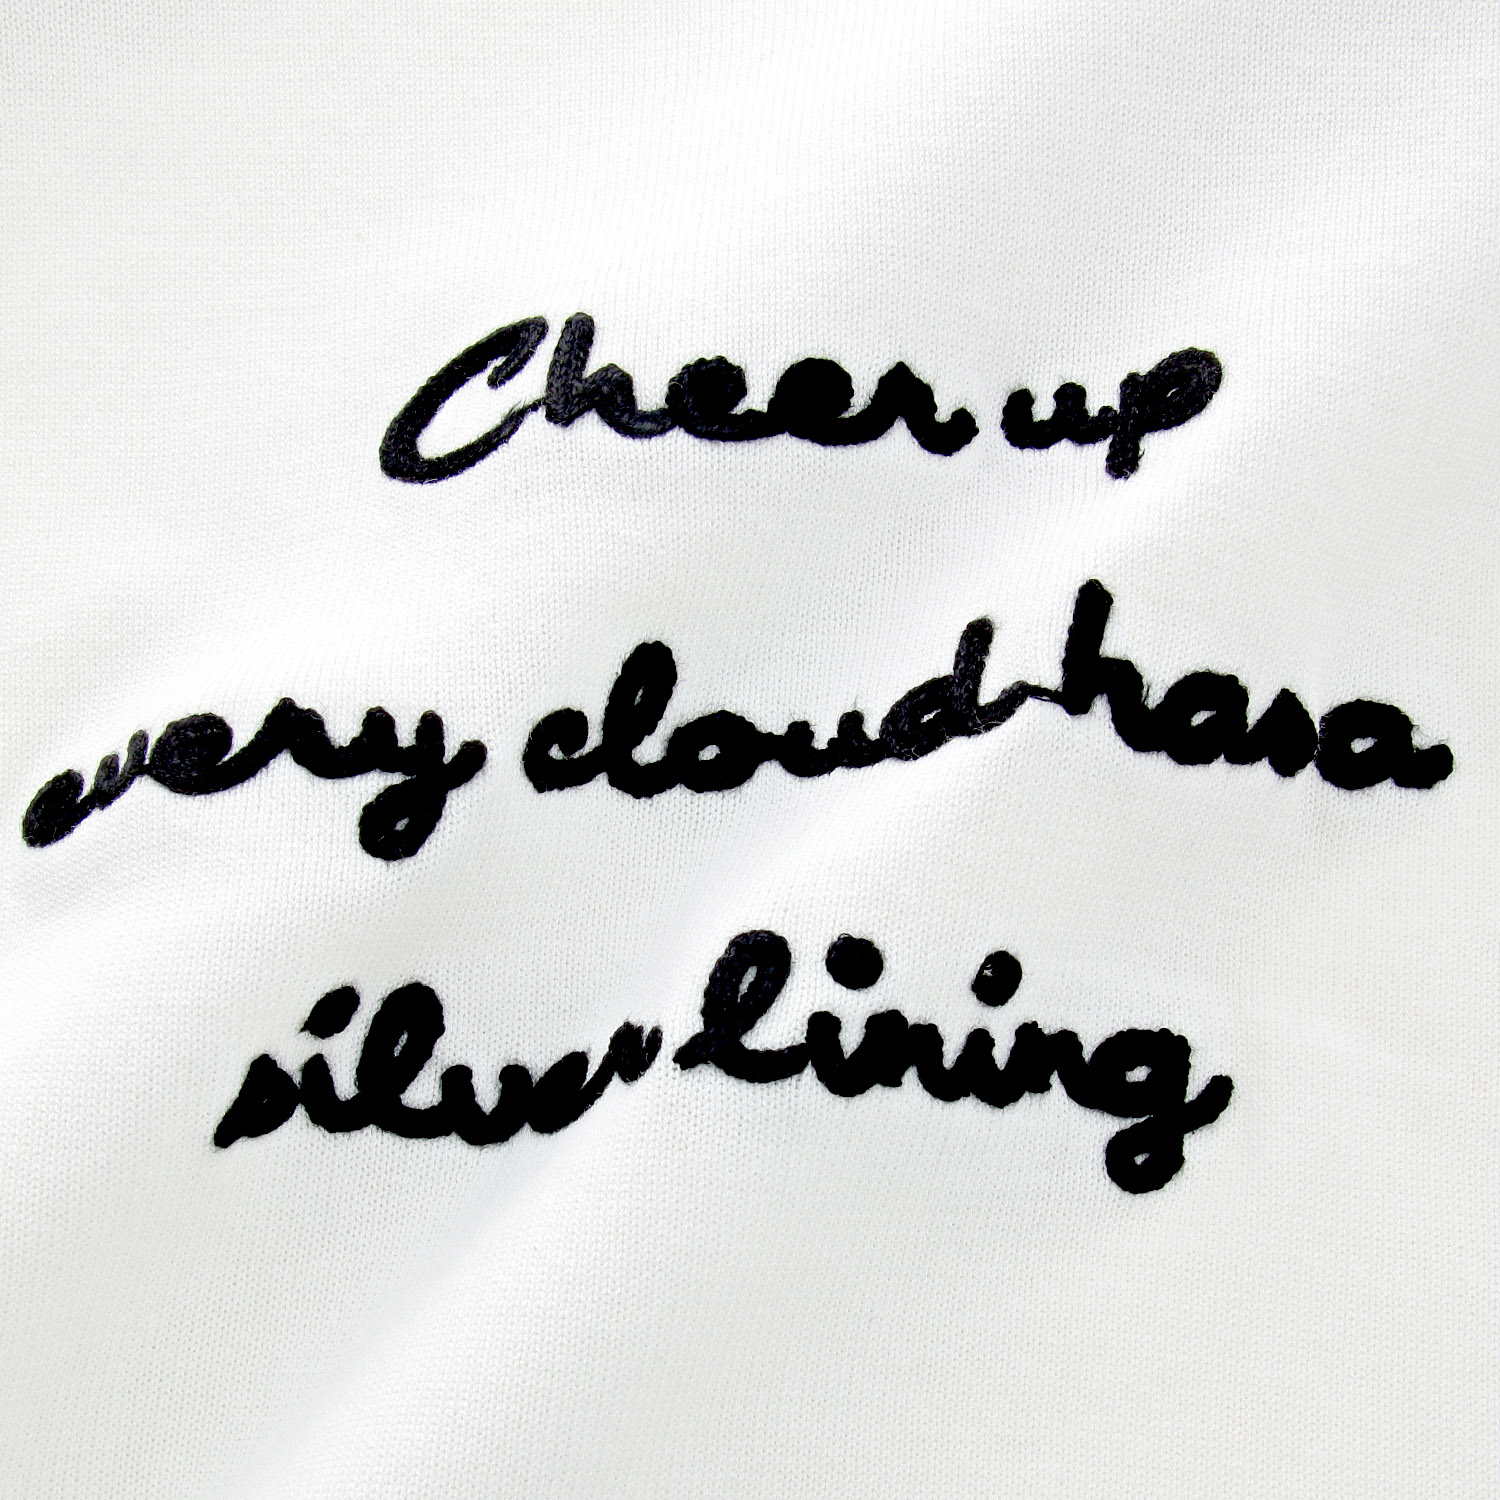 Cheer up
every cloud has a
silver lining